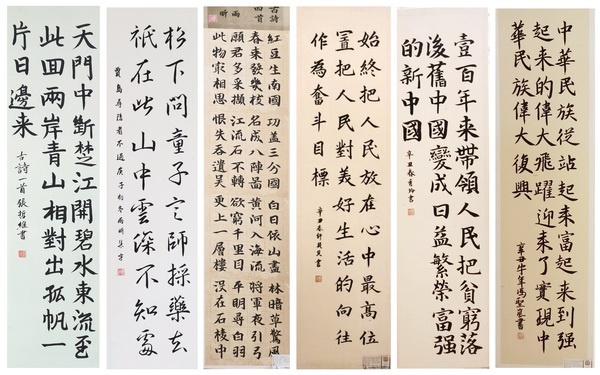 天門中斷楚江開碧水東流至
此回兩岸青山相對出孤帆一
片日邊来
古詩一首 張哲維書
松下問童子言師採藥去
祇在此山中雲深不知處
賈島尋隱者不遇庚子初冬雨
古詩
四首
雨昕
紅豆生南國 功蓋三分國 白日依山盡 林暗草驚風
春来發幾枝 名成八陣圖 黄河入海流 將軍夜引弓
願君多采擷 江流石不轉 欲窮千里目 平明尋白羽
此物最相思 恨失吞遺吴 更上一層樓 沒在石棱中
始終把人民放在心中最高位
置把人民對美好生活的向往
作為奮斗目標
辛丑 書
壹百年来帶領人民把貧窮落
後舊中國變成日益繁榮富强
的新中國
辛丑春 書
中華民族從站起来富起来到强
起来的偉大飛躍迎来了實現中
華民族偉大復興
辛丑牛年馮聖 書